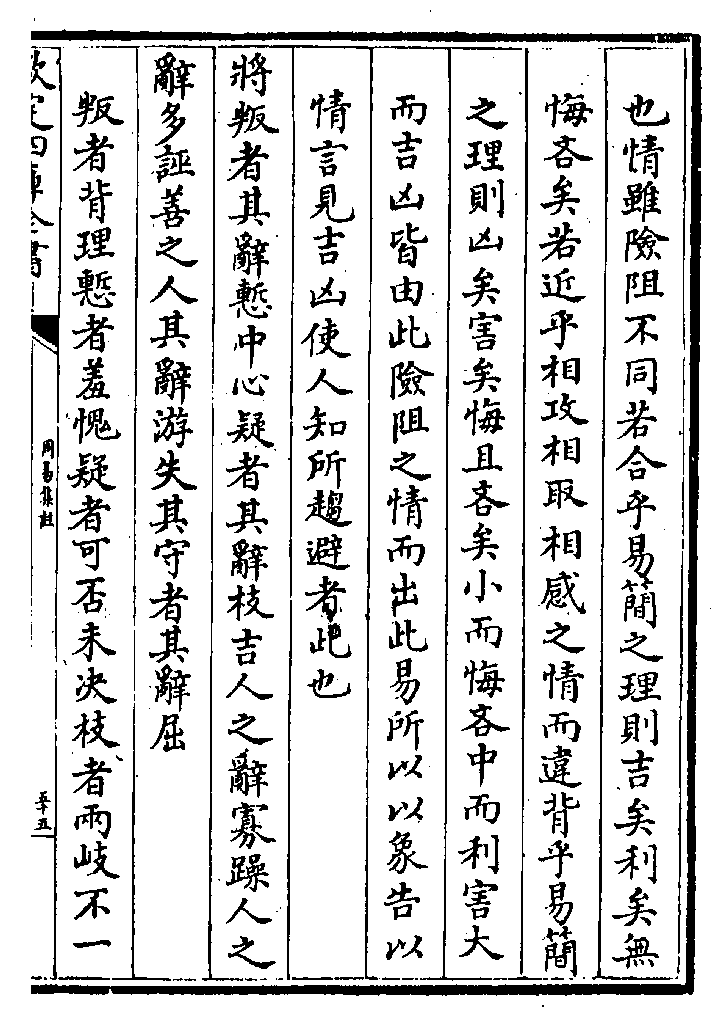 也情雖險阻不同若合乎易簡之理則吉矣利矣無
悔吝矣若近乎相攻相取相感之情而違背乎易簡
之理則凶矣害矣悔且吝矣小而悔吝中而利害大
而吉凶皆由此險阻之情而出此易所以以象告以
情言見吉凶使人知所趨避者此也
將叛者其辭慙中心疑者其辭枝吉人之辭寡躁人之
辭多誣善之人其辭游失其守者其辭屈
叛者背理慙者羞愧疑者可否未決枝者兩岐不一
欽定四庫全書
周易集註